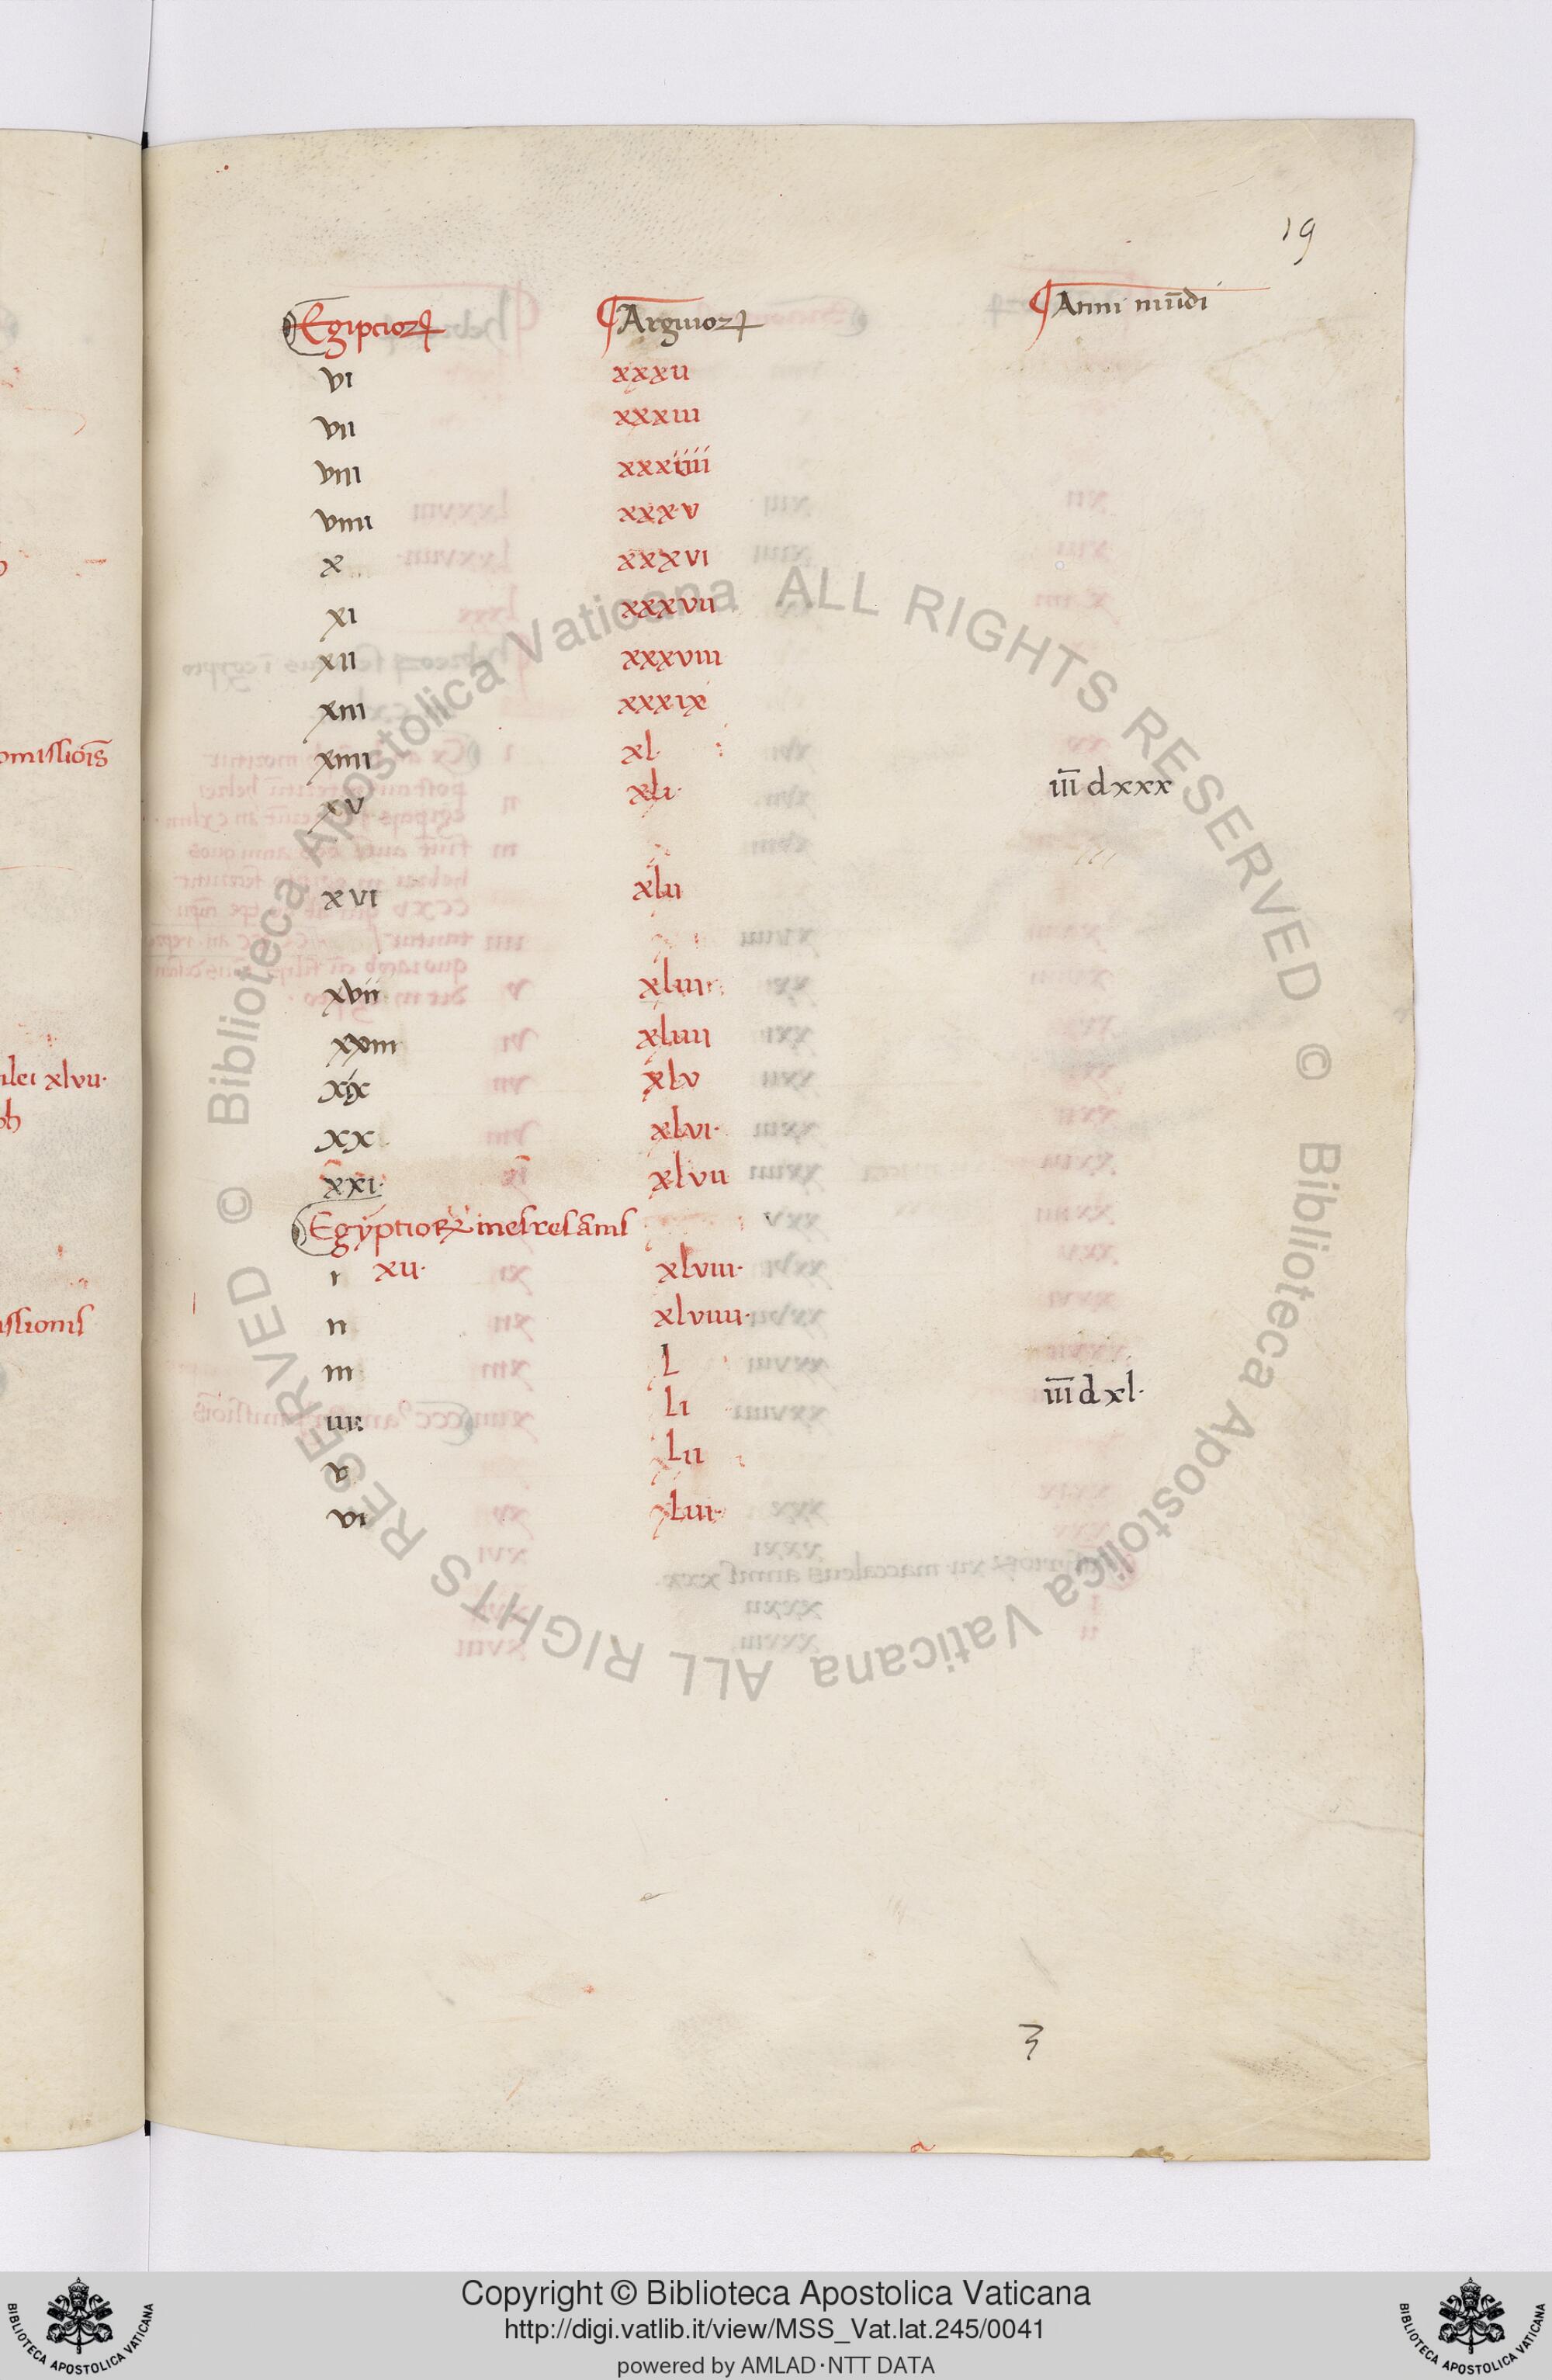 19
Egipcioꝝ Argiuoꝝ Anni mu̅di
vi xxxii
vii xxxiii
viii xxxiiii
viiii xxxv
x xxxvi
xi xxxvii
xii xxxviii
xiii xxxix
xiiii xl
omissiois̅
xv xli· iii̅ dxxx
xvi xlii
xvii xliii
xviii xliiii
ilei xlvii·
xix xlv
xx xlvi·
xxi· xlvii
Egyptioꝝ
i xii· xlviii·
ii xlviiii·
issionis
iii L
iiii Li iii̅ d xl·
v Lii
vi xLiii·
3
© Biblioteca Apostolica Vaticana ALL RIGHTS RESERVED
© Biblioteca Apostolica Vaticana ALL RIGHTS RESERVED
Copyright © Biblioteca Apostolica Vaticana
http://digi.vatlib.it/view/MSS_Vat.lat.245/0041
powered by AMLAD·NTT DATA
BIBLIOTECA APOSTOLICA VATICANA
BIBLIOTECA APOSTOLICA VATICANA